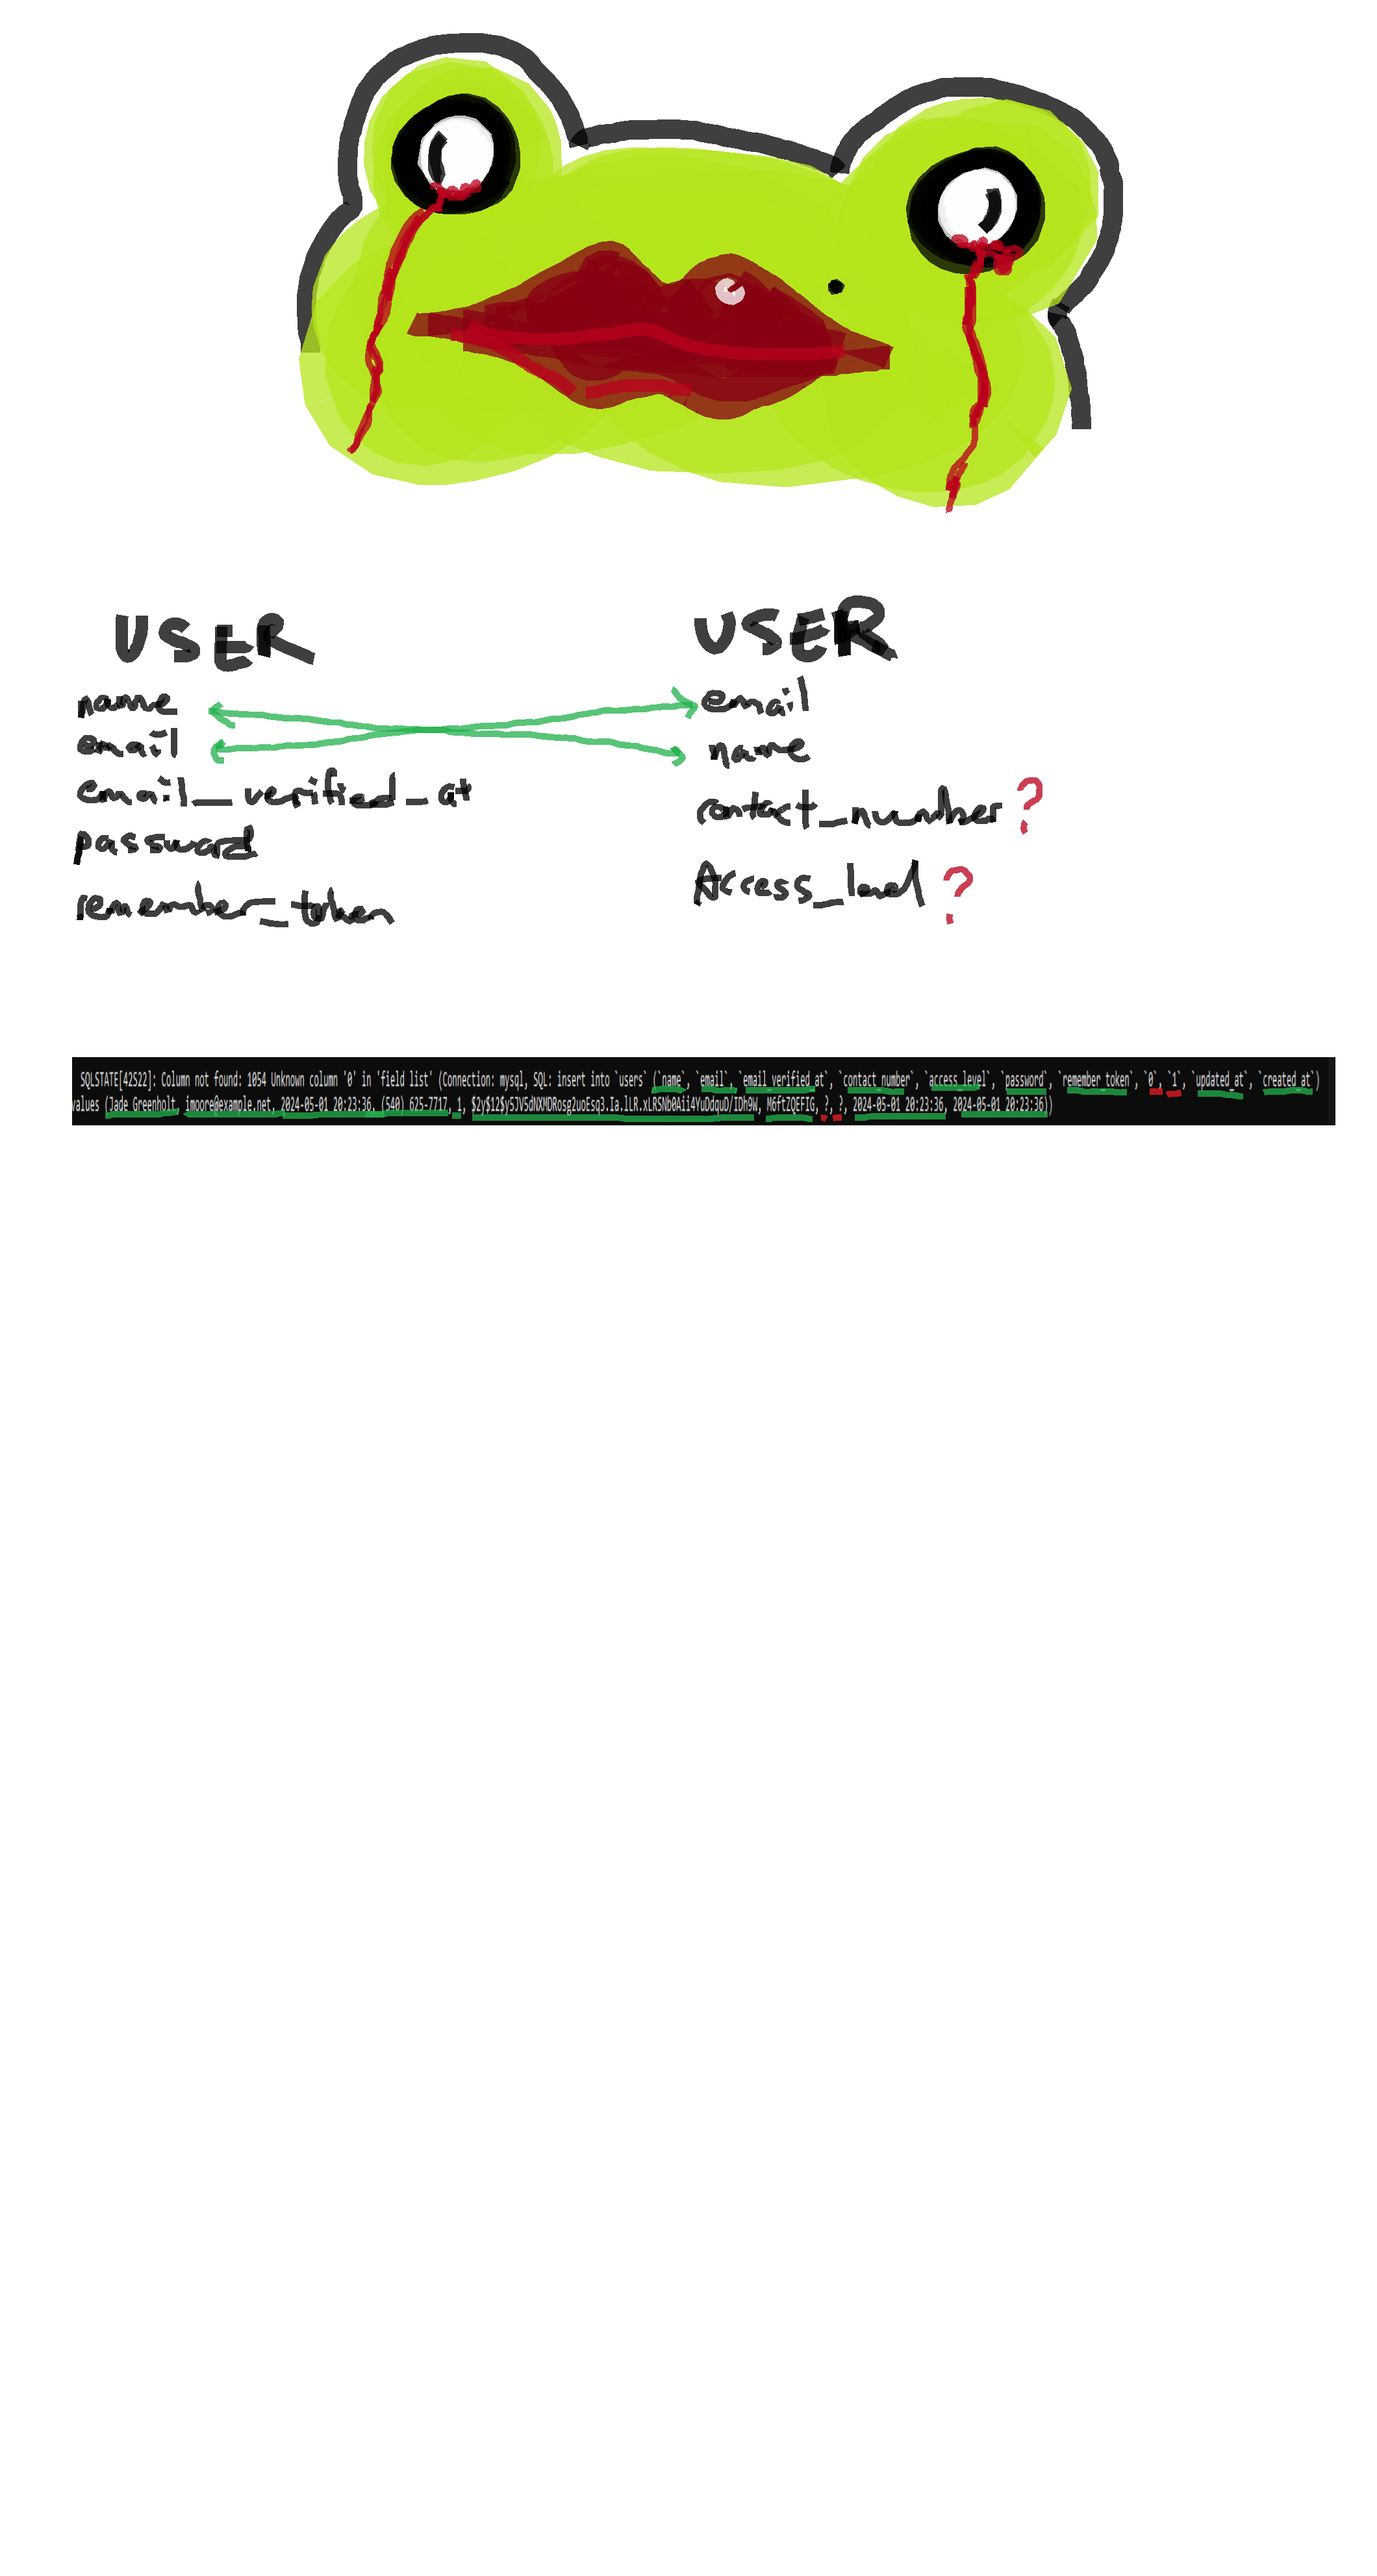 USER
name
email
email_verified_at
password
remember_token
USER
email
name
contact_number?
Access_level?
SQLSTATE[42S22]: Column not found: 1054 Unknown column '0' in 'field list' (Connection: mysql, SQL: insert into `users` (`name`, `email`, `email_verified_at`, `contact_number`, `access_level`, `password`, `remember_token`, `0`, `1`, `updated_at`, `created_at`)
values (Jade Greenholt, imoore@example.net, 2024-05-01 20:23:36, (540) 625-7717, 1, ?, ?, 2024-05-01 20:23:36, 2024-05-01 20:23:36))